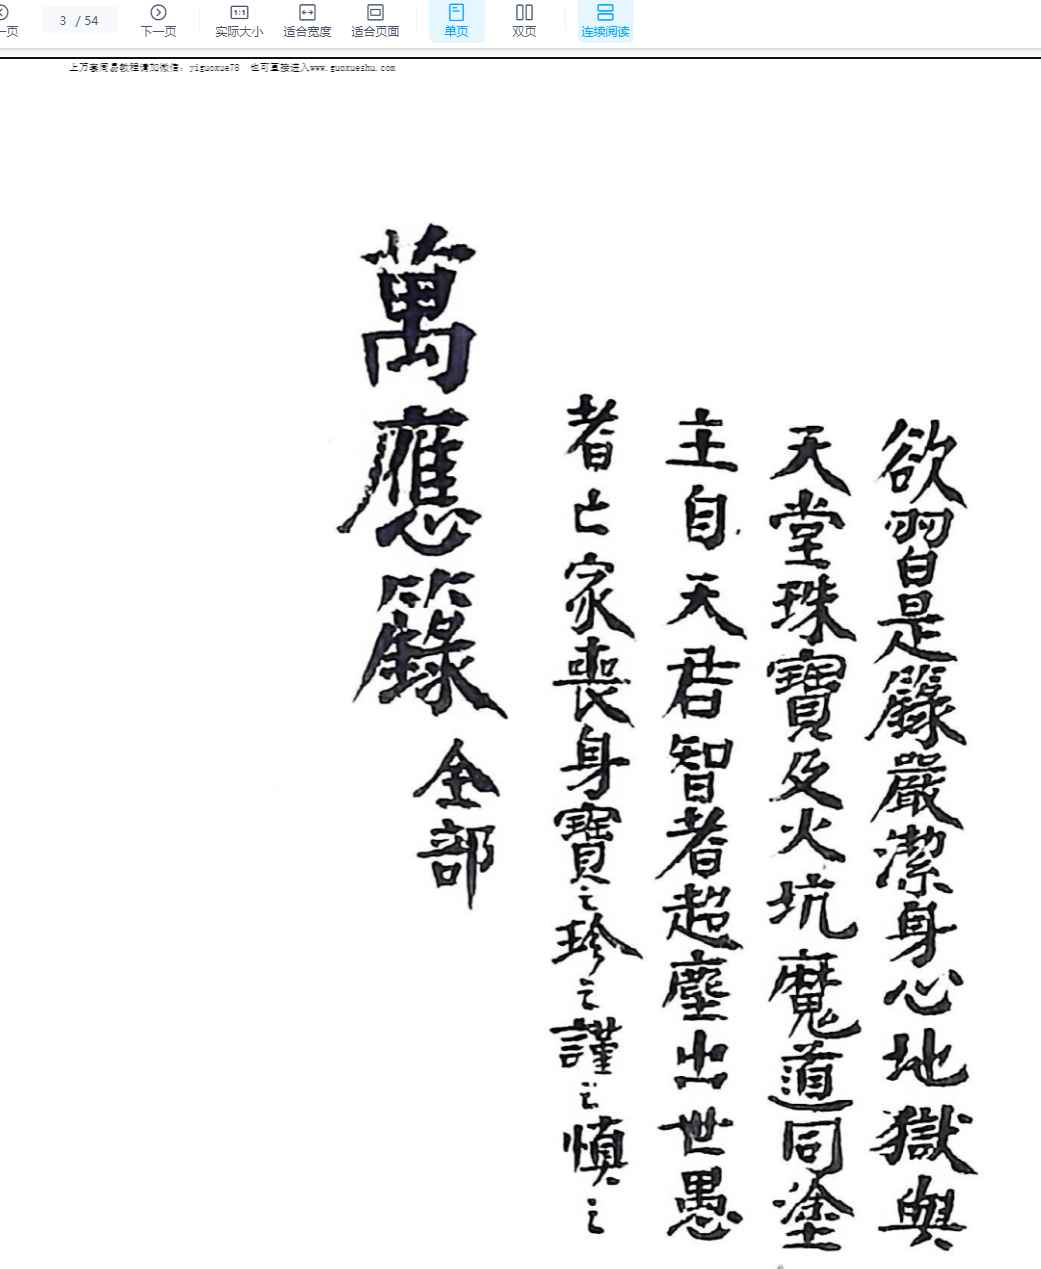 一页
3 / 54
下一页
实际大小
适合宽度
适合页面
单页
双页
连续阅读
上万套周易教程请加微信：yiguoxue78 也可直接进入www.guoxueshu.com
欲習是籙嚴潔身心地獄與
天堂珠寶及火坑魔道同塗
主自天君智者超塵出世愚
者亡家喪身寶之珍之謹之慎之
萬應籙全部